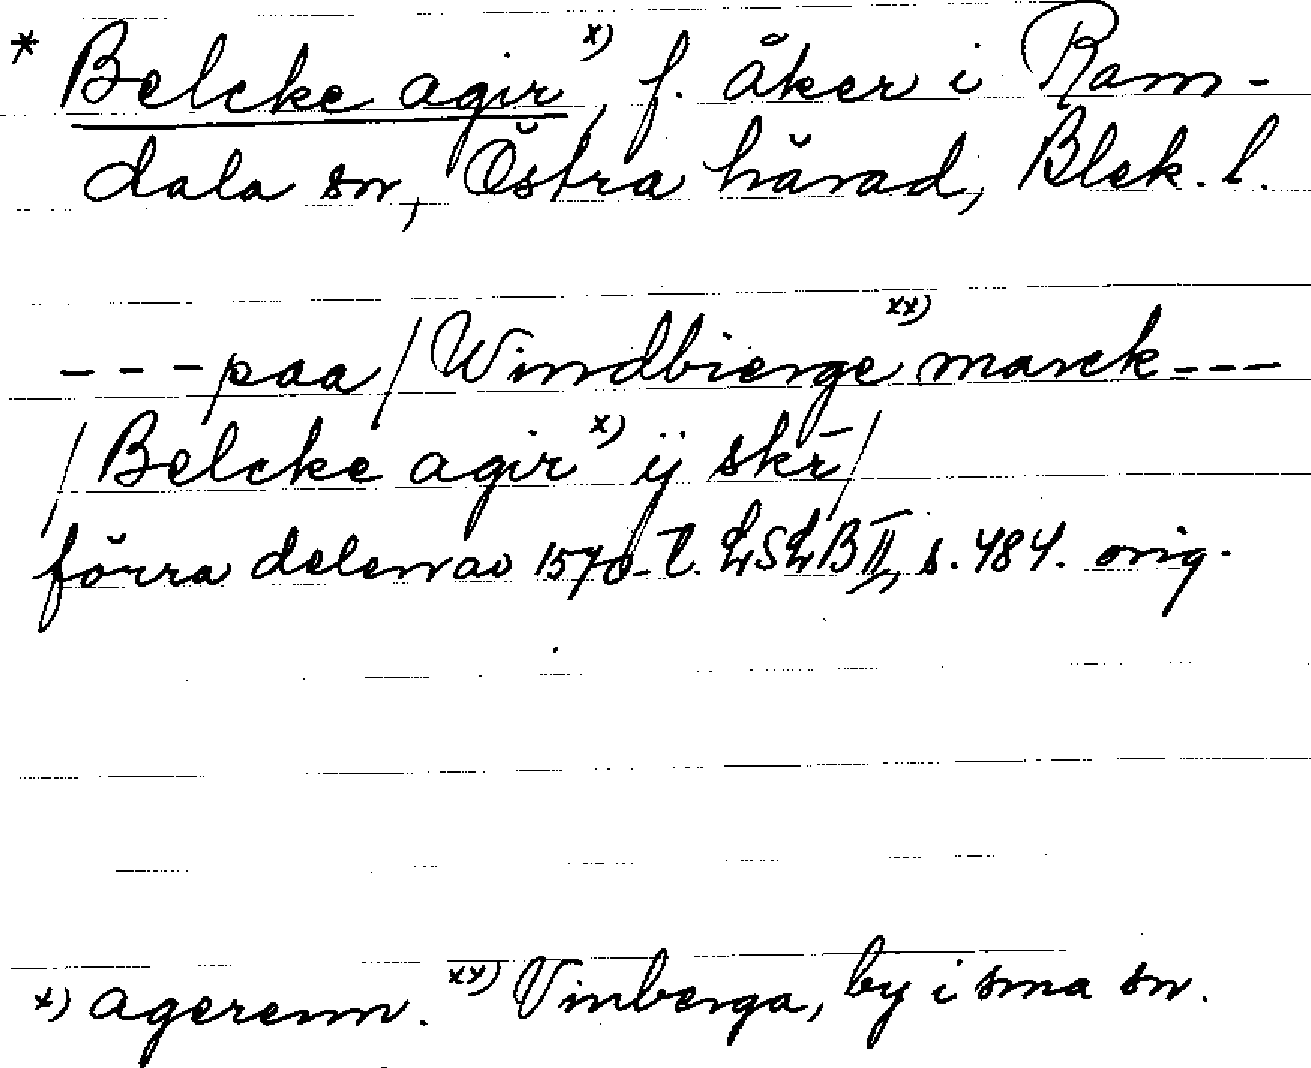 * Belcke agir x), f. åker i Ram-
dala sn, Östra härad, Blek. l.
---paa/Windbierge xx) marck---
/Belcke agir x) ij skr̄/
förra delen av 1570-t. LSLB II, s. 484. orig.
x) agerenn. xx) Vinberga, by i sma sn.